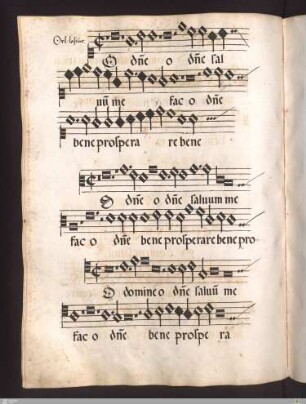 Orl: lassus
O dn̄e o dn̄e sal
uū me fac o dn̄e
bene prospera re bene
O dn̄e o dn̄e saluum me
fac o dn̄e bene prosperare bene pro
O domine o dn̄e saluū me
fac o dn̄e bene prospe ra